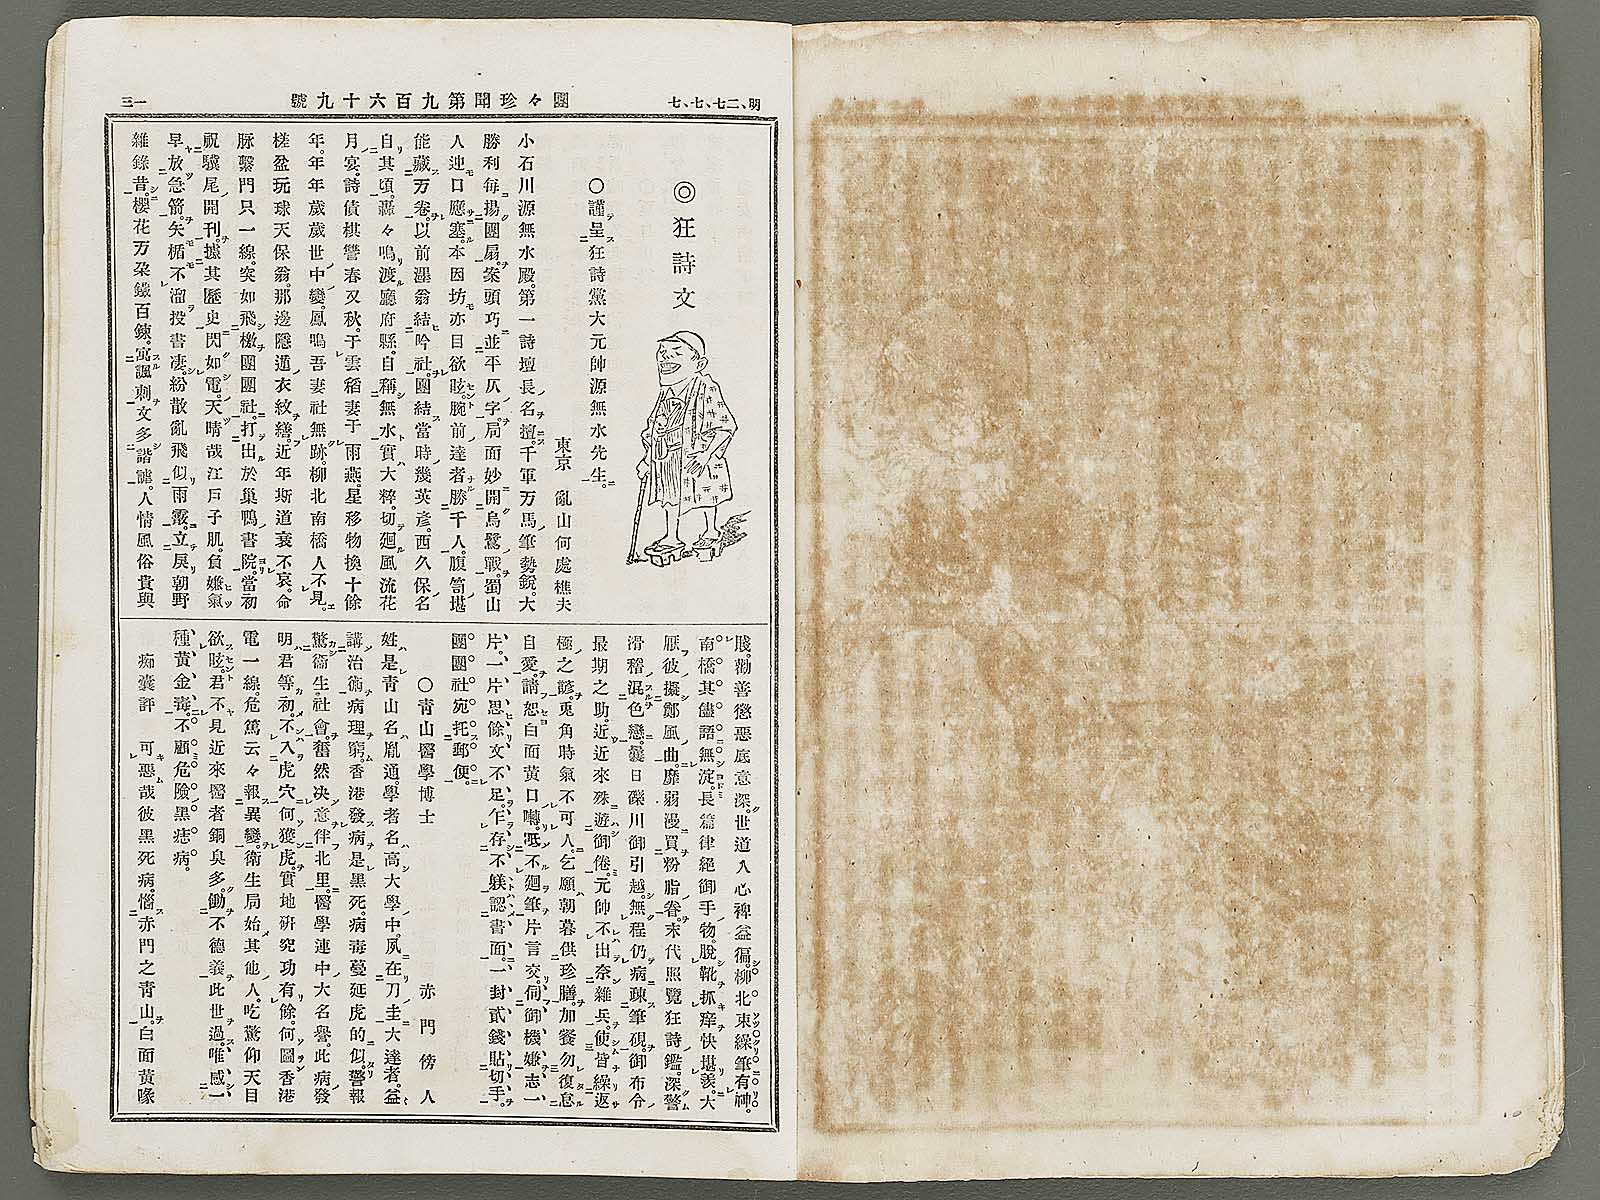 明、二七、七、七
團々珍聞第九百六十九號
一三
◎狂詩文
○謹呈狂詩黨大元帥源無水先生。
東京 亂山何處樵夫
小石川源無水殿。第一詩壇長名擅。千軍万馬筆勢銳。大
勝利每揚團扇。案頭巧並平仄字。局面妙開烏鷺戰。蜀山
人迚口應塞。本因坊亦目欲眩。腕前達者勝千人。腹笥堪
能藏万卷。以前墨翁結吟社。團結當時幾英彥。西久保名
自其頃。轟々鳴渡廳府縣。自稱無水實大粹。切廻風流花
月宴。詩債棋讐春又秋。于雲稻妻于雨燕。星移物換十餘
年。年年歲歲世中變。鳳鳴吾妻社無跡。柳北南橋人不見。
槎盆玩球天保翁。那邊隱遁衣紋繕。近年斯道衰不哀。命
脉繫門只一線。突如飛檄團團社。打出於巢鴨書院。當初
祝驥尾開刊。據其歷史閃如電。天晴哉江戶子肌。負嫌氣
早放急箭。矢楯不溜投書凄。紛散亂飛似雨霰。立戾朝野
維錄昔。櫻花万朶鐵百鍊。寓諷刺文多諧謔。人情風俗貴與
賤。勸善懲惡底意深。世道人心裨益徧。柳北東繰筆有神。
南橋其儘語無淀。長篇律絕御手物。脫靴抓痒快堪羨。大
厭彼擬鄭風曲。靡弱漫買粉脂眷。末代照覽狂詩鑑。深警
滑稽混色戀。曩日礫川御引越。無程仍病疎筆硯。御布令
最期之助。近近來殊遊御倦。元帥不出奈雜兵。使皆繰返
極之諺。兎角時氣不可人。乞願朝暮供珍膳。加餐勿復怠
自愛。請恕白面黃口囀。呧不廻筆片言交。伺御機嫌志一
片。一片思餘文不足。乍存不躾認書面。一封貳錢貼切手。
團團社宛托郵便。
○青山醫學博士
赤門傍人
姓是青山名胤通。學者名高大學中。夙在刀圭大達者。益
講治術病理窮。香港發病是黑死。病毒蔓延虎的似。警報
驚衞生社會。奮然决意伴北里。醫學連中大名譽。此病發
明君等初。不入虎穴何獲虎。實地硏究功有餘。何圖香港
電一線。危篤云々報異變。衛生局始其他人。吃驚仰天目
欲眩。君不見近來醫者銅臭多。働不德義此世過。唯感一
種黃金毒。不顧危險黑痣病。
痴囊評 可惡哉彼黑死病。惱赤門之青山。白面黃喙